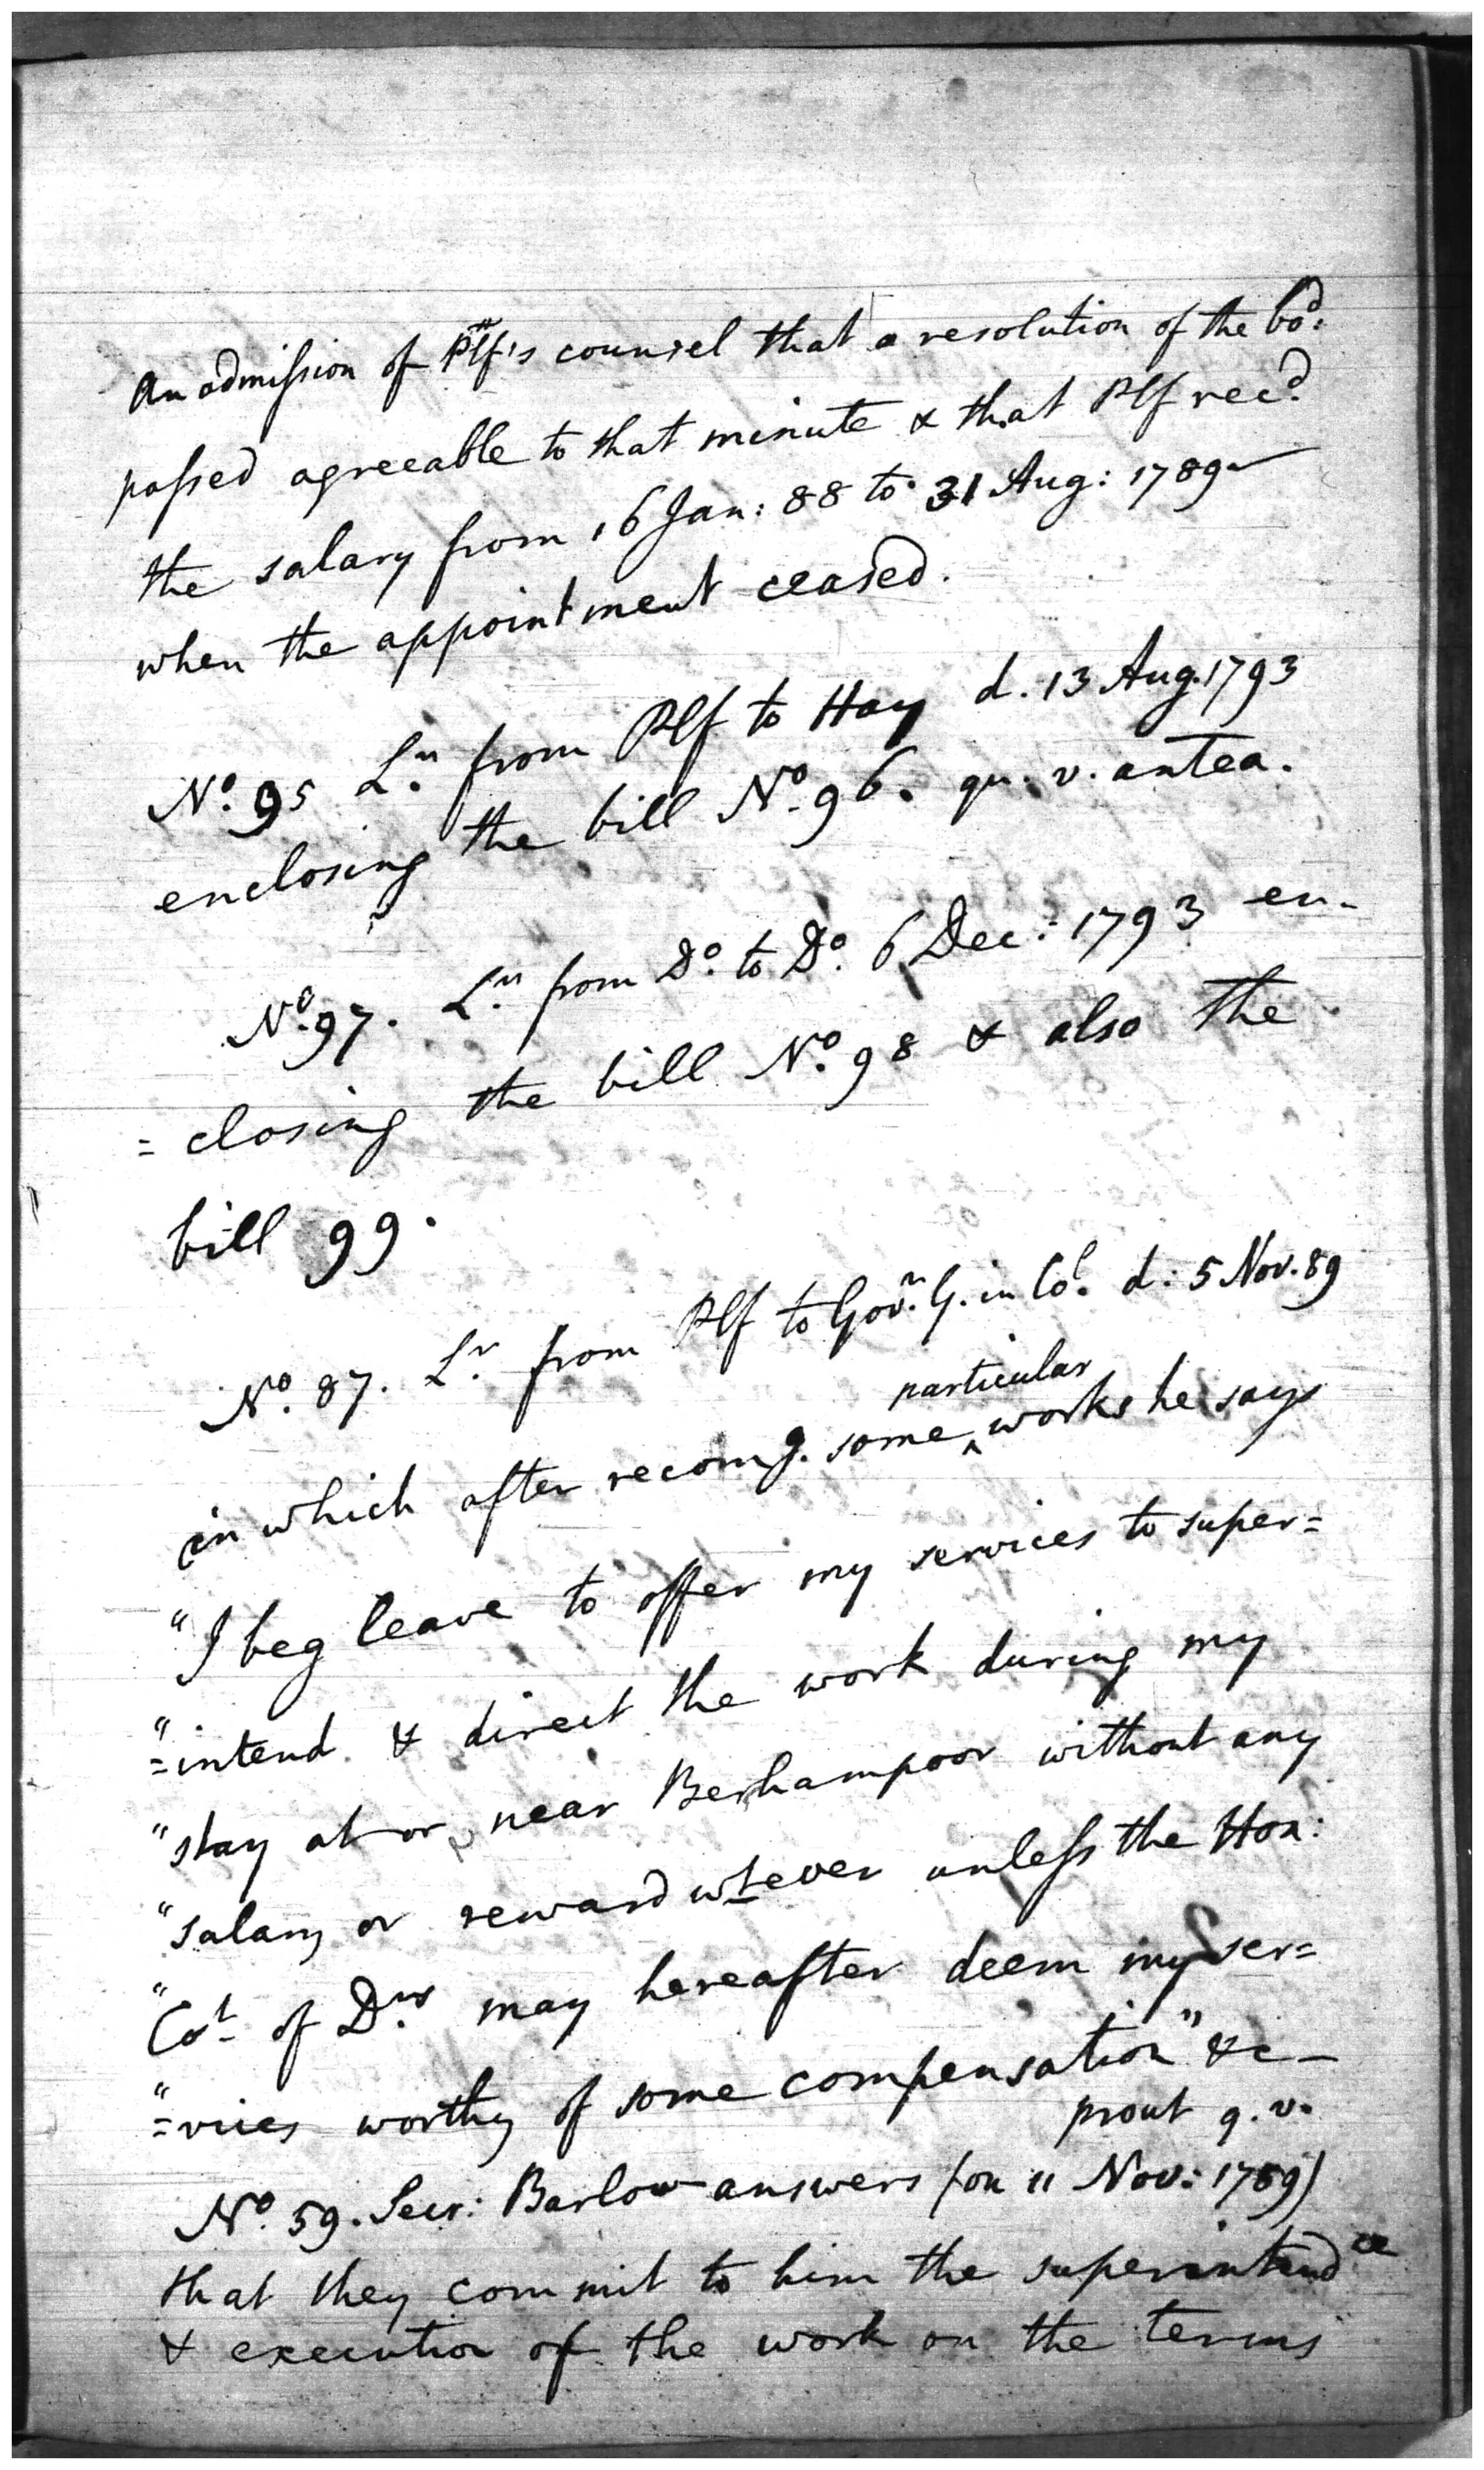 An admission of Plf's counsel that a resolution of the bod.
passed agreeable to that minute & that Plf recd.
the salary from 16 Jan: 88 to 31 Aug: 1789
when the appointment ceased.
No. 95 Lr. from Plf to Hay d. 13 Aug. 1793
enclosing the bill No. 96. qu. v. antea.
No. 97. Lr. from Do. to Do. 6 Dec: 1793 en-
=closing the bill No. 98 & also the
bill 99.
No. 87. Lr. from Plf to Govr. G. in Col. d: 5 Nov. 89
in which after recomg. some particular works he says
"I beg leave to offer my services to super=
"=intend & direct the work during my
"stay at or near Berhampoor without any
"salary or reward wtever unless the Hon:
"Cot. of Drs. may hereafter deem my ser=
"=vices worthy of some compensation" &c—
prout q. v.
No. 59. Secr: Barlow answers (on 11 Nov: 1789)
that they commit to him the superintendce
& execution of the work on the terms